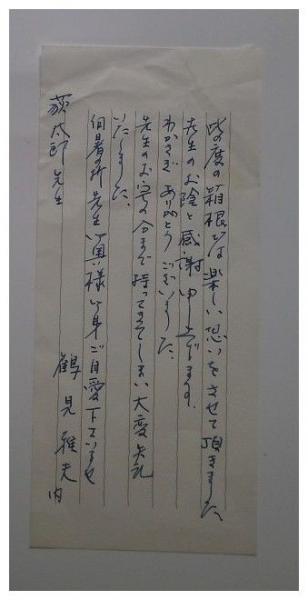 此の度の箱根では楽しい思いをさせて頂きました、
先生のお陰と感謝申し上げます
わかさぎありがとうございました、
先生のお宅の分まで持ってきてしまい大変失礼
いたしました、
向暑の折先生、奥様、御身ご自愛下さいませ
鶴見雅夫内
荻太郎先生